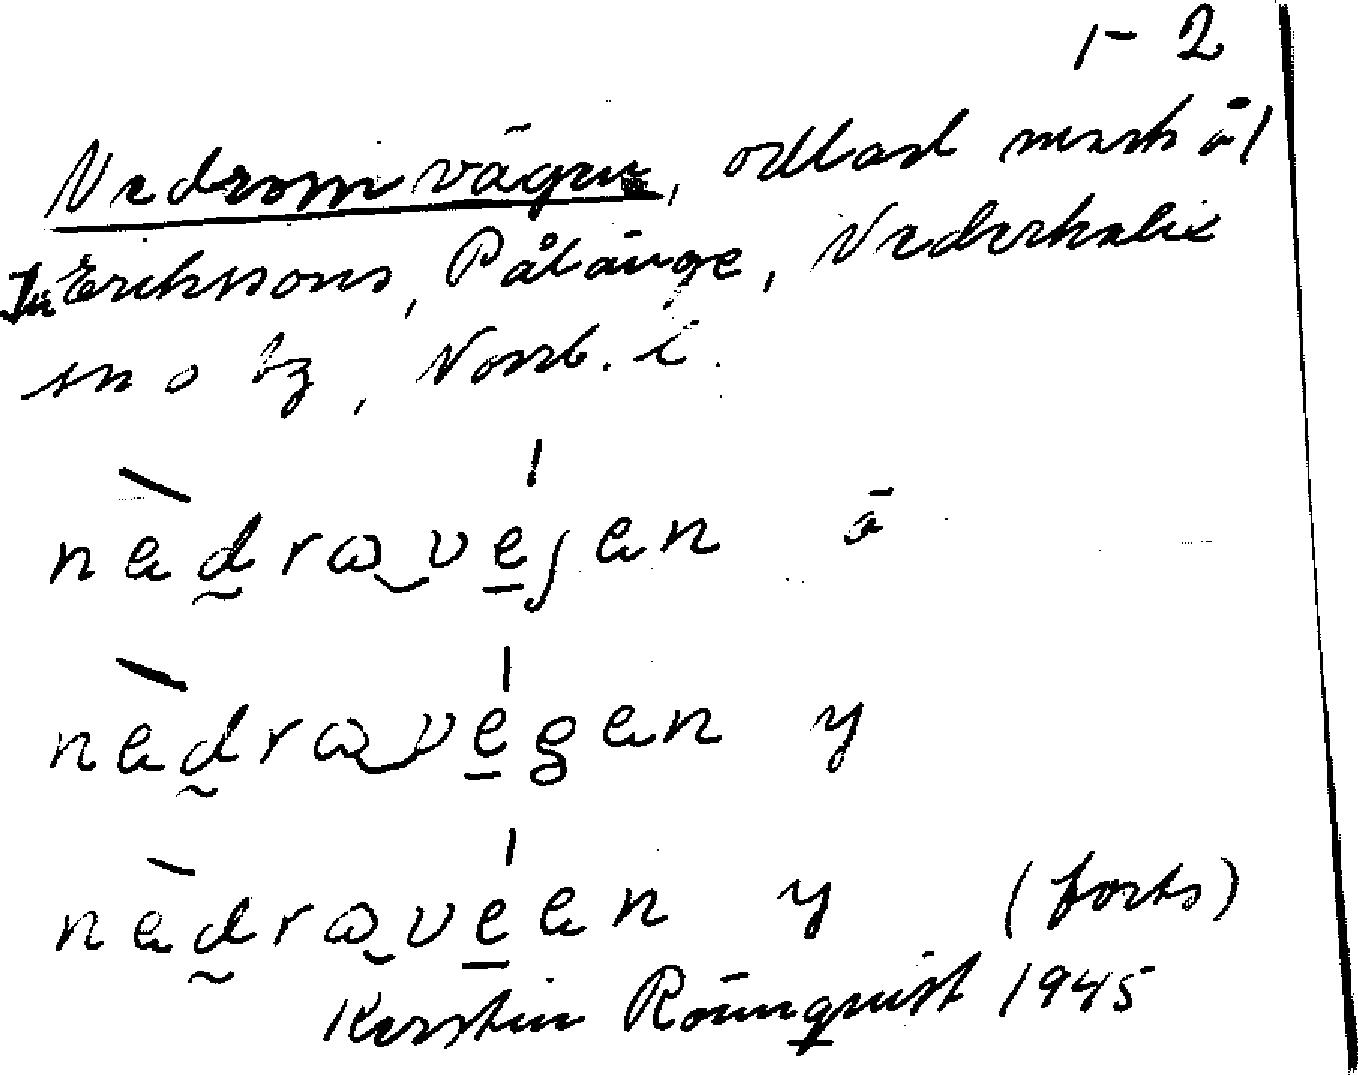 1-2
Nedromvägen, odlad mark äl
Erikssons, Pålänge, Nederkalix
sn o tg, Norrb. l.
nedravejen ä
nedravegen y
nedraveen y (forts)
Kerstin Rönnquist 1945